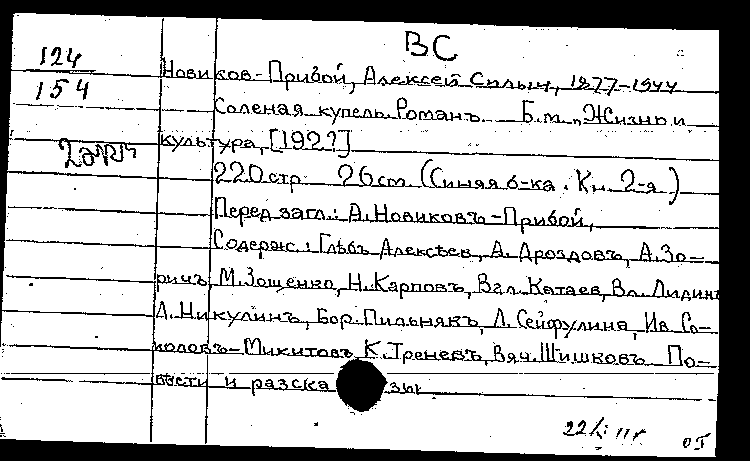 ВС
124
154
2 экз
Новиков-Прибой, Алексей Силыч, 1877-1944
Соленая купель. Романъ. Б.м. „Жизнь и
культура, [192?]
220 стр. 26 cm. (Синяя б-ка. Кн. 2-я)
Перед загл.: А. Новиковъ-Прибой,
Содерж.: Глѣбъ Алексѣев, А. Дроздовъ, А. Зо-
ричъ, М. Зощенко, Н. Карповъ, Вал. Катаев, Вл. Лидинъ
Л. Никулинъ, Бор. Пильнякъ, Л. Сейфулина, Ив. Со-
коловъ-Микитовъ, К. Треневъ, Вяч. Шишковъ По-
вести и разсказы